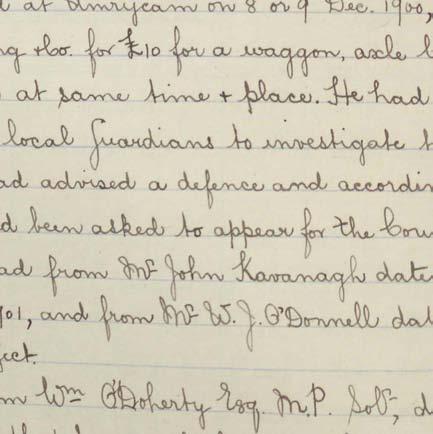 at Umrycam on 8 or 9 Dec. 1900,
ng & Co. for £10 for a waggon, axle b
at same time + place. He had
local Guardians to investigate t
ad advised a defence and accordin
d been asked to appear for the Cou
ad from Mr John Kavanagh date
901, and from Mr W. J. O'Donnell dat
ject.
m Wm O'Doherty Esq. M.P. Solr, d